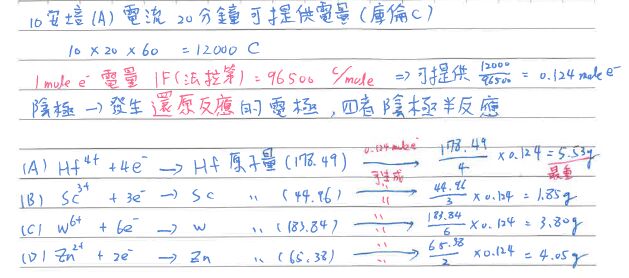 10安培(A)電流 20分鐘可提供電量(庫倫C)
10 × 20 × 60 = 12000 C
1 mole e⁻ 電量 1F(法拉第) = 96500 C/mole ⇒ 可提供 12000/96500 = 0.124 mole e⁻
陰極 → 發生還原反應的電極,四者陰極半反應
(A) Hf⁴⁺ + 4e⁻ → Hf 原子量(178.49) 0.124 mole e⁻ 可生成 → 178.49/4 × 0.124 = 5.53g 最重
(B) Sc³⁺ + 3e⁻ → Sc 〃 (44.96) 〃 → 〃 44.96/3 × 0.124 = 1.85g
(C) W⁶⁺ + 6e⁻ → W 〃 (183.84) 〃 → 〃 183.84/6 × 0.124 = 3.80g
(D) Zn²⁺ + 2e⁻ → Zn 〃 (65.38) 〃 → 〃 65.38/2 × 0.124 = 4.05g